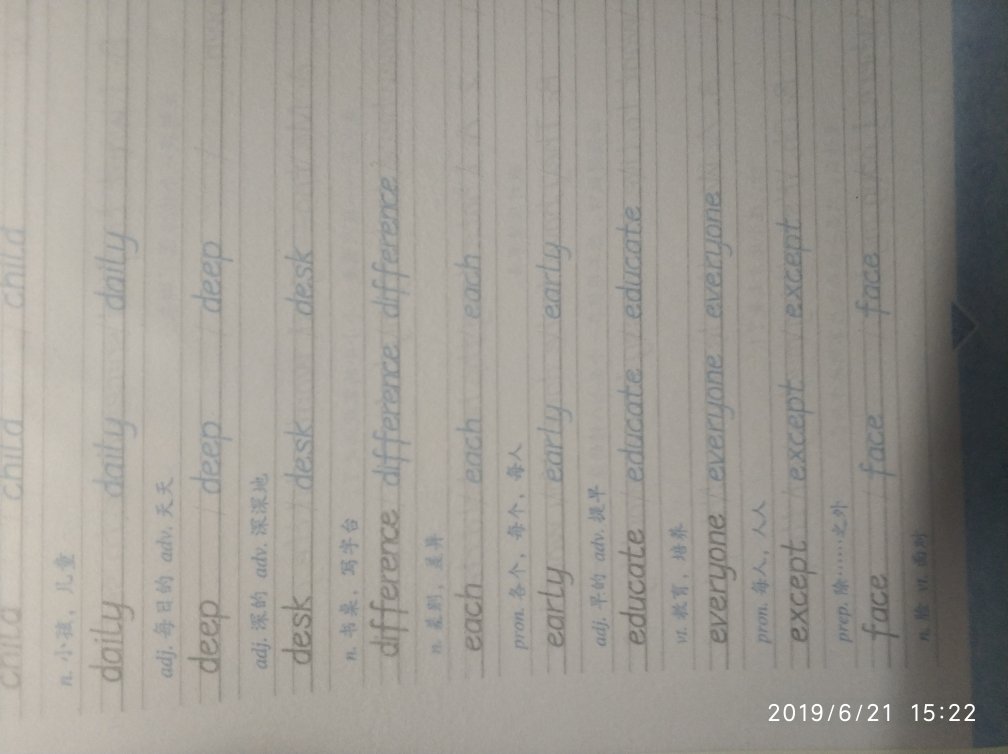 child child child
n. 小孩，儿童
daily daily daily
adj. 每日的 adv. 天天
deep deep deep
adj. 深的 adv. 深深地
desk desk desk
n. 书桌，写字台
difference difference difference
n. 差别，差异
each each each
pron. 各个，每个，每人
early early early
adj. 早的 adv. 提早
educate educate educate
vt. 教育，培养
everyone everyone everyone
pron. 每人，人人
except except except
prep. 除……之外
face face face
n. 脸 vt. 面对
2019/6/21 15:22